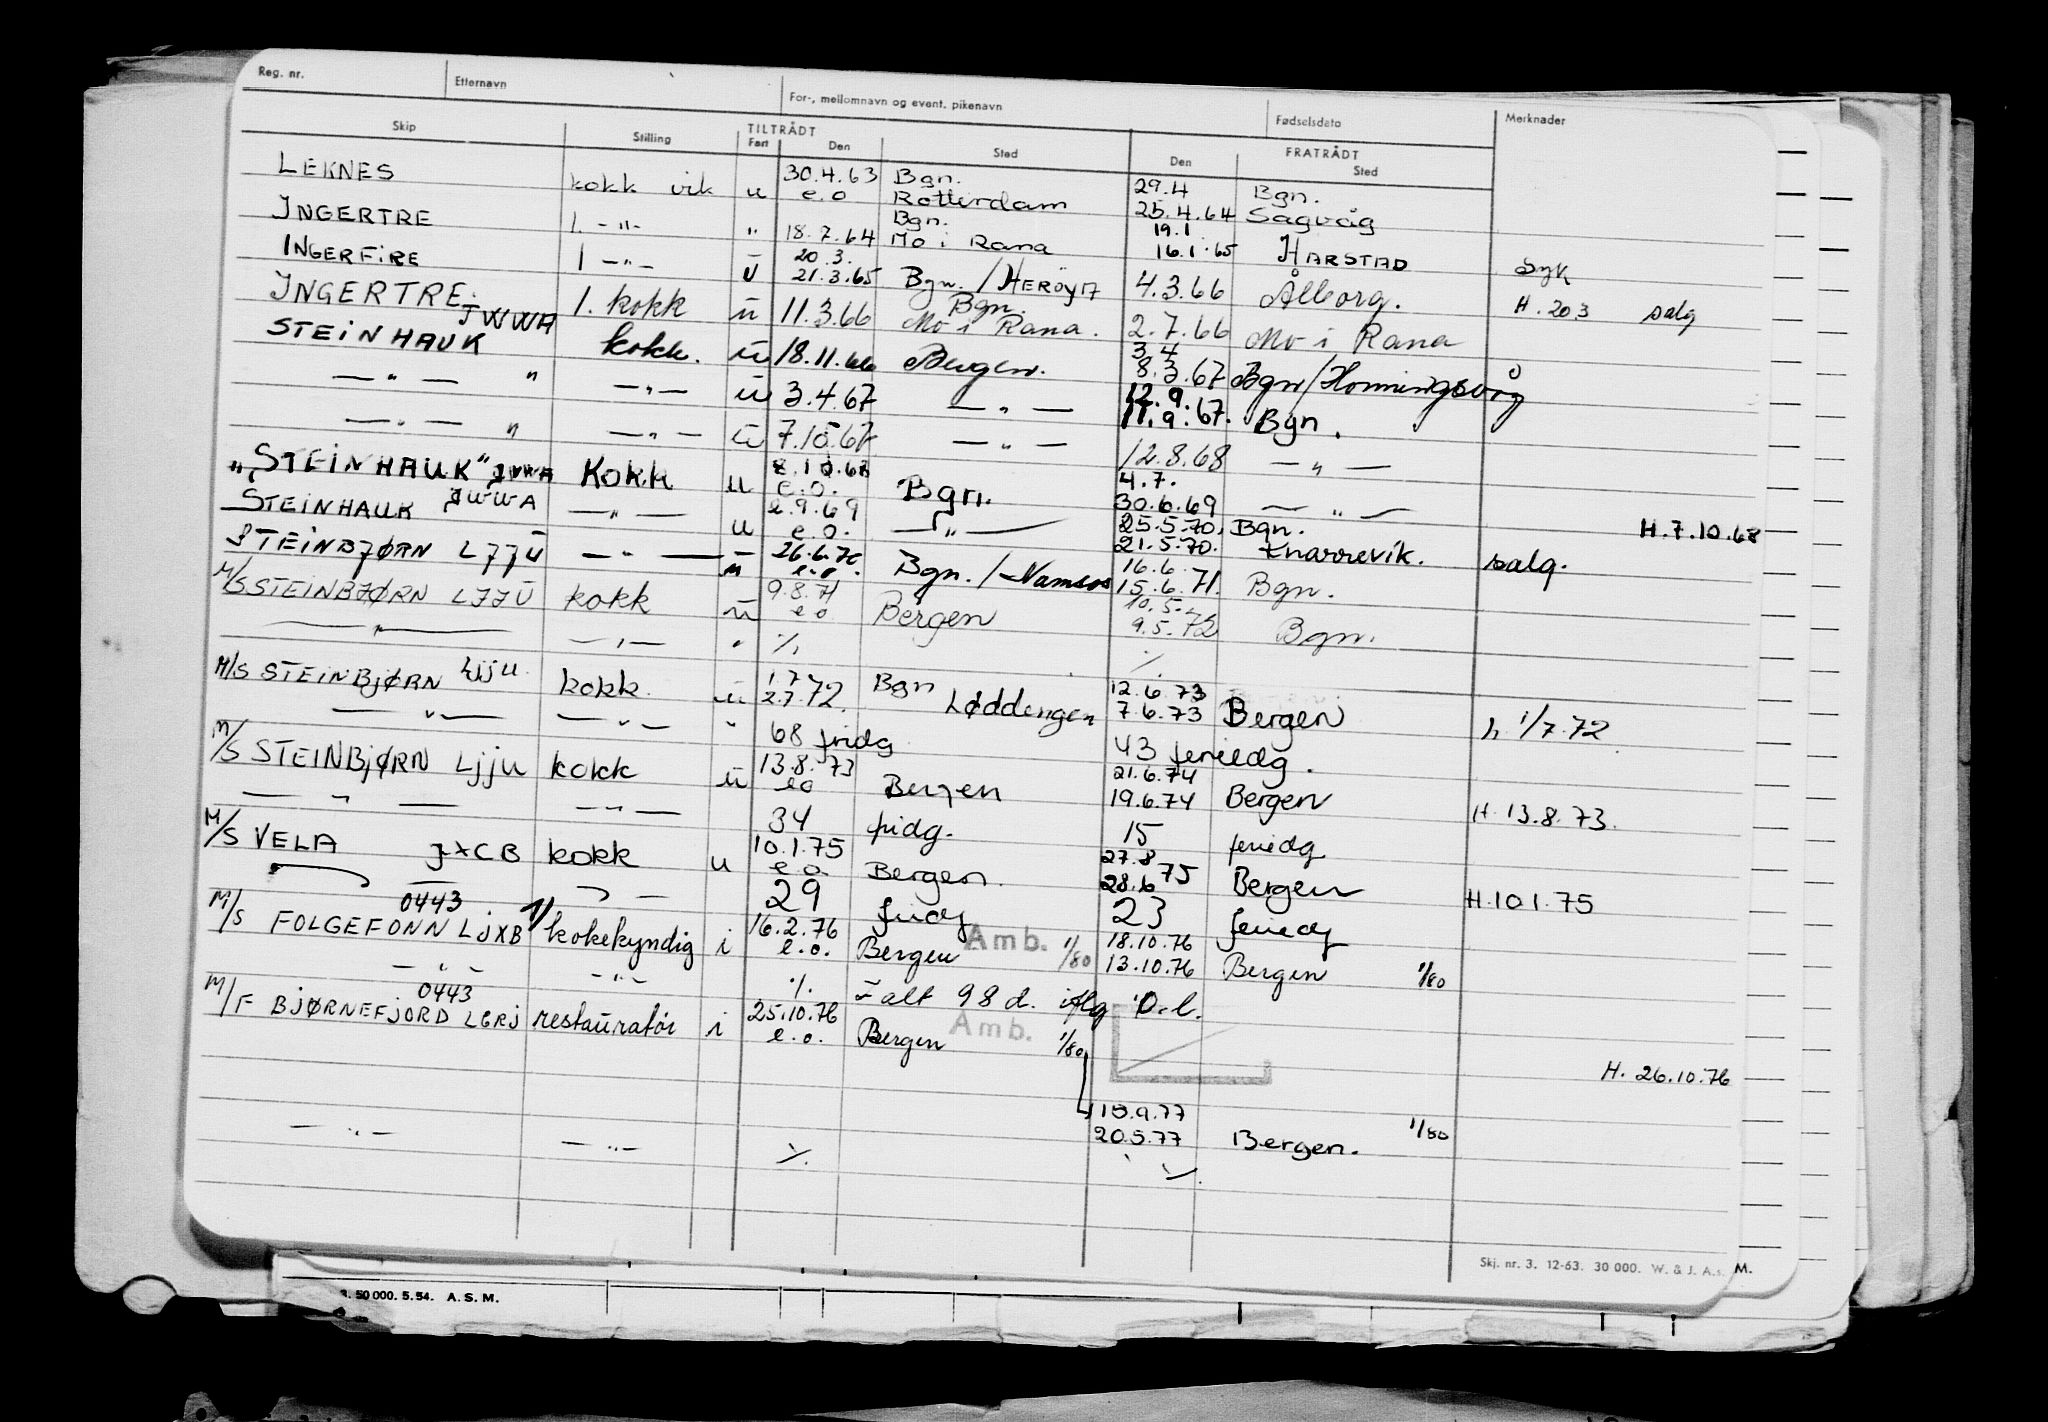 Reg. nr. Etternavn For-, mellomnavn og event. pikenavn Fødselsdato Merknader
Skip Stilling TILTRÅDT FRATRÅDT
Fart Den Sted Den Sted
LEKNES kokk vik u 30.4.63 Bgn. 29.4 Bgn.
e.o Rotterdam 25.4.64 Sagvåg
INGERTRE 1. -"- " 18.7.64 Bgn. Mo i Rana 19.1 16.1.65 HARSTAD syk
INGERFIRE 1 -"- ū 20.3. 21.3.65 Bgn./HERÖYA 4.3.66 Ålborg. H. 20 3 salg
INGERTRE 1. kokk ū 11.3.66 Bgn. Mo i Rana. 2.7.66 Mo i Rana
STEINHAUK JWWA kokk. ū 18.11.66 Bergen. 3.4 8.3.67 Bgn/Honningsvåg
-"- " -"- ū 3.4.67 -"- 12.9. 11.9.67. Bgn.
-"- " -"- ū 7.10.67 -"- 12.8.68 -"-
"STEINHAUK" JWWA Kokk u 8.10.68 e.o. Bgn. 4.7. 30.6.69 -"- H.7.10.68
STEINHAUK JWWA -"- u e.9.69 e.o. -"- 25.5.70, Bgn. 21.5.70. Knarrevik. salg.
STEINBJØRN LJJU -"- ū 26.6.70 e.o. Bgn./Namsos 16.6. 15.6.71. Bgn.
M/S STEINBJØRN LJJU kokk ū 9.8.71 e.o Bergen 10.5. 9.5.72 Bgn.
-"- -"- " %
%
M/S STEINBJØRN LJJU kokk. ū 1 7 2.7.72. Bgn Løddingen 12.6.73 7.6.73 Bergen h. 1/7.72
-"- -"- " 68 fridg 43 feriedg.
M/S STEINBJØRN LJJU kokk ū 13.8.73 e.o Bergen 21.6.74 19.6.74 Bergen H. 13.8.73.
-"- -"- 34 fridg. 15 feriedg
M/S VELA JXCB kokk u 10.1.75 e.o. Bergen. 27.8 28.6 75 Bergen H.10.1.75
29 fridg 23 feriedg
0443
M/S FOLGEFONN LJXB 1/ kokekyndig i 16.2.76 e.o. Bergen Amb. 1/80 18.10.76 13.10.76 Bergen 1/80
-"- -"- % I alt 98 d. iflg D.l.
0443
M/F BJØRNEFJORD LGRJ restauratør i 25.10.76 e.o. Bergen Amb. 1/80
H. 26.10.76
15.9.77
20.5.77 Bergen. 1/80
-"- -"- % %
Skj. nr. 3. 12-63. 30 000. W. & J. A.s. M.
50 000. 5.54. A. S. M.